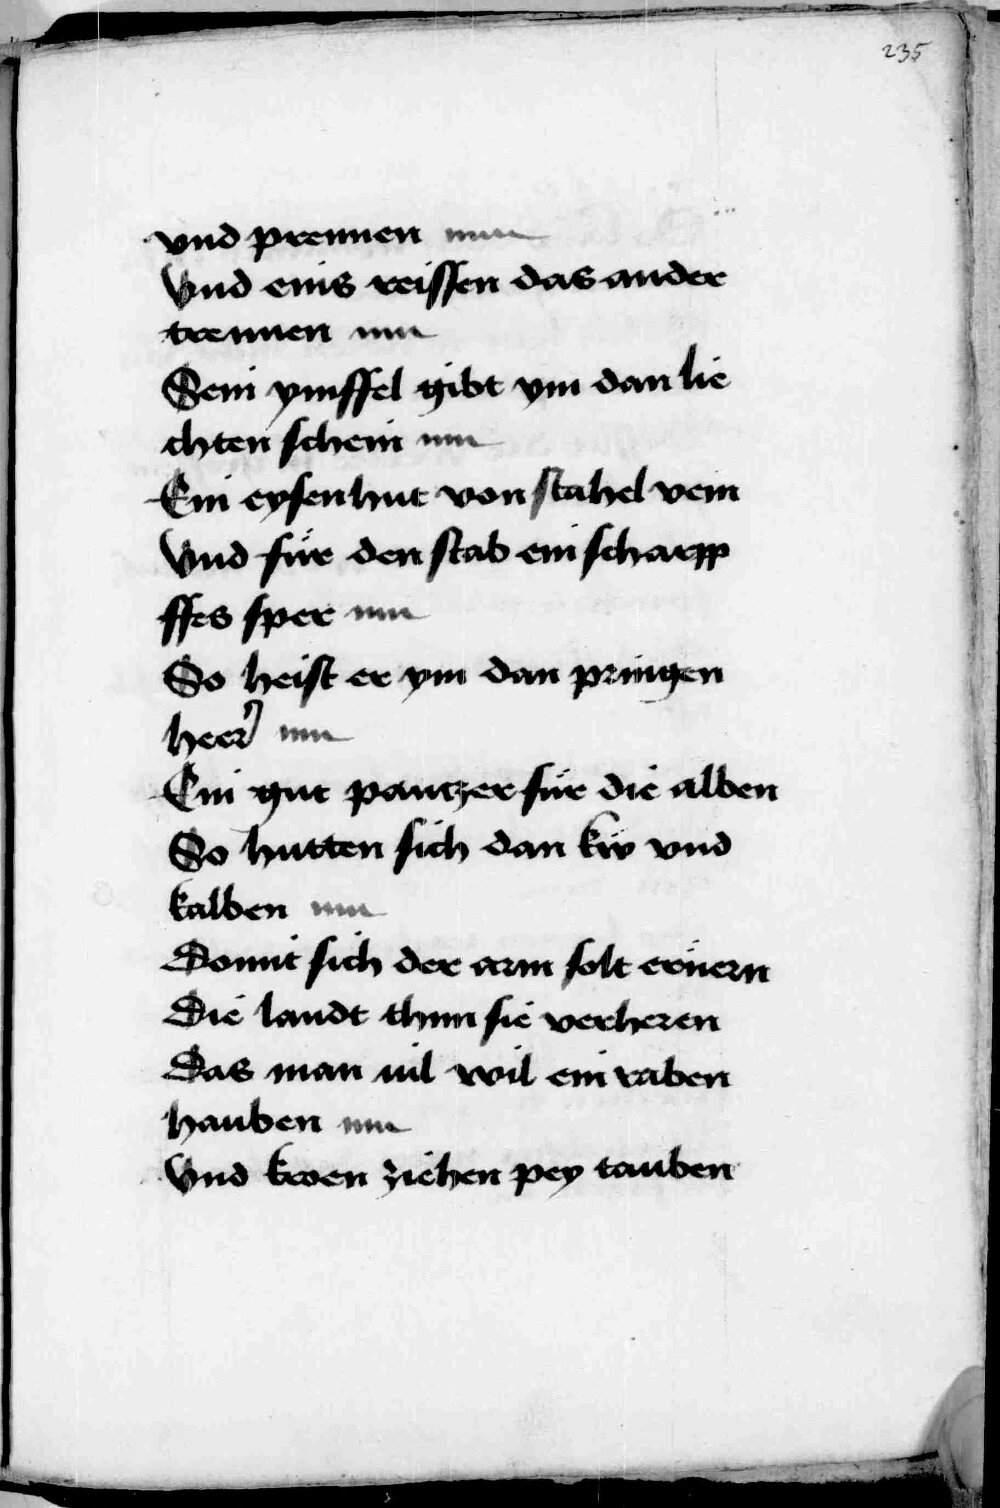 235
vnd prennen
Vnd eins reissen das ander
trennen
Sein ynffel gibt ym dan lie
chten schein
Ein eysenhut von stahel vein
Vnd für den stab ein scharpp
ffes sper
So heist er ym dan pringen
heer
Ein gut pantzer für die alben
So hutten sich dan kẅ vnd
kalben
Domit sich der arm solt ernern
Die landt thun sie verheren
Das man nil wil ein raben
hauben
Vnd kroen ziehen pey tauben